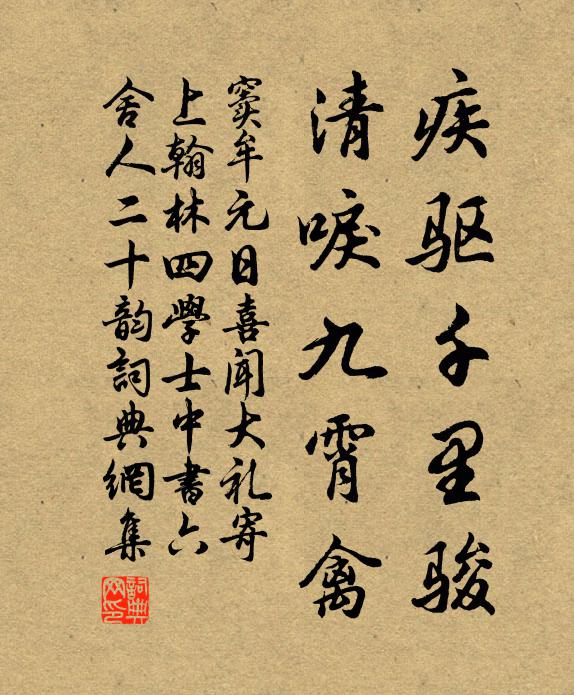 疾驱千里骏
清唳九霄禽
窦牟元日喜闻大礼寄
上翰林四學士中書六
舍人二十韵詞典網集
詞典网印